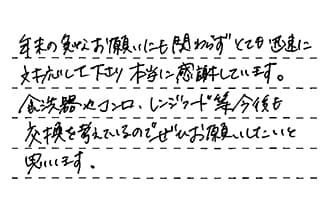 年末の急なお願いにも関わらずとても迅速に
対応して下さり本当に感謝しています。
食洗器やコンロ、レンジフード等今後も
交換を考えているのでぜひお願いしたいと
思います。